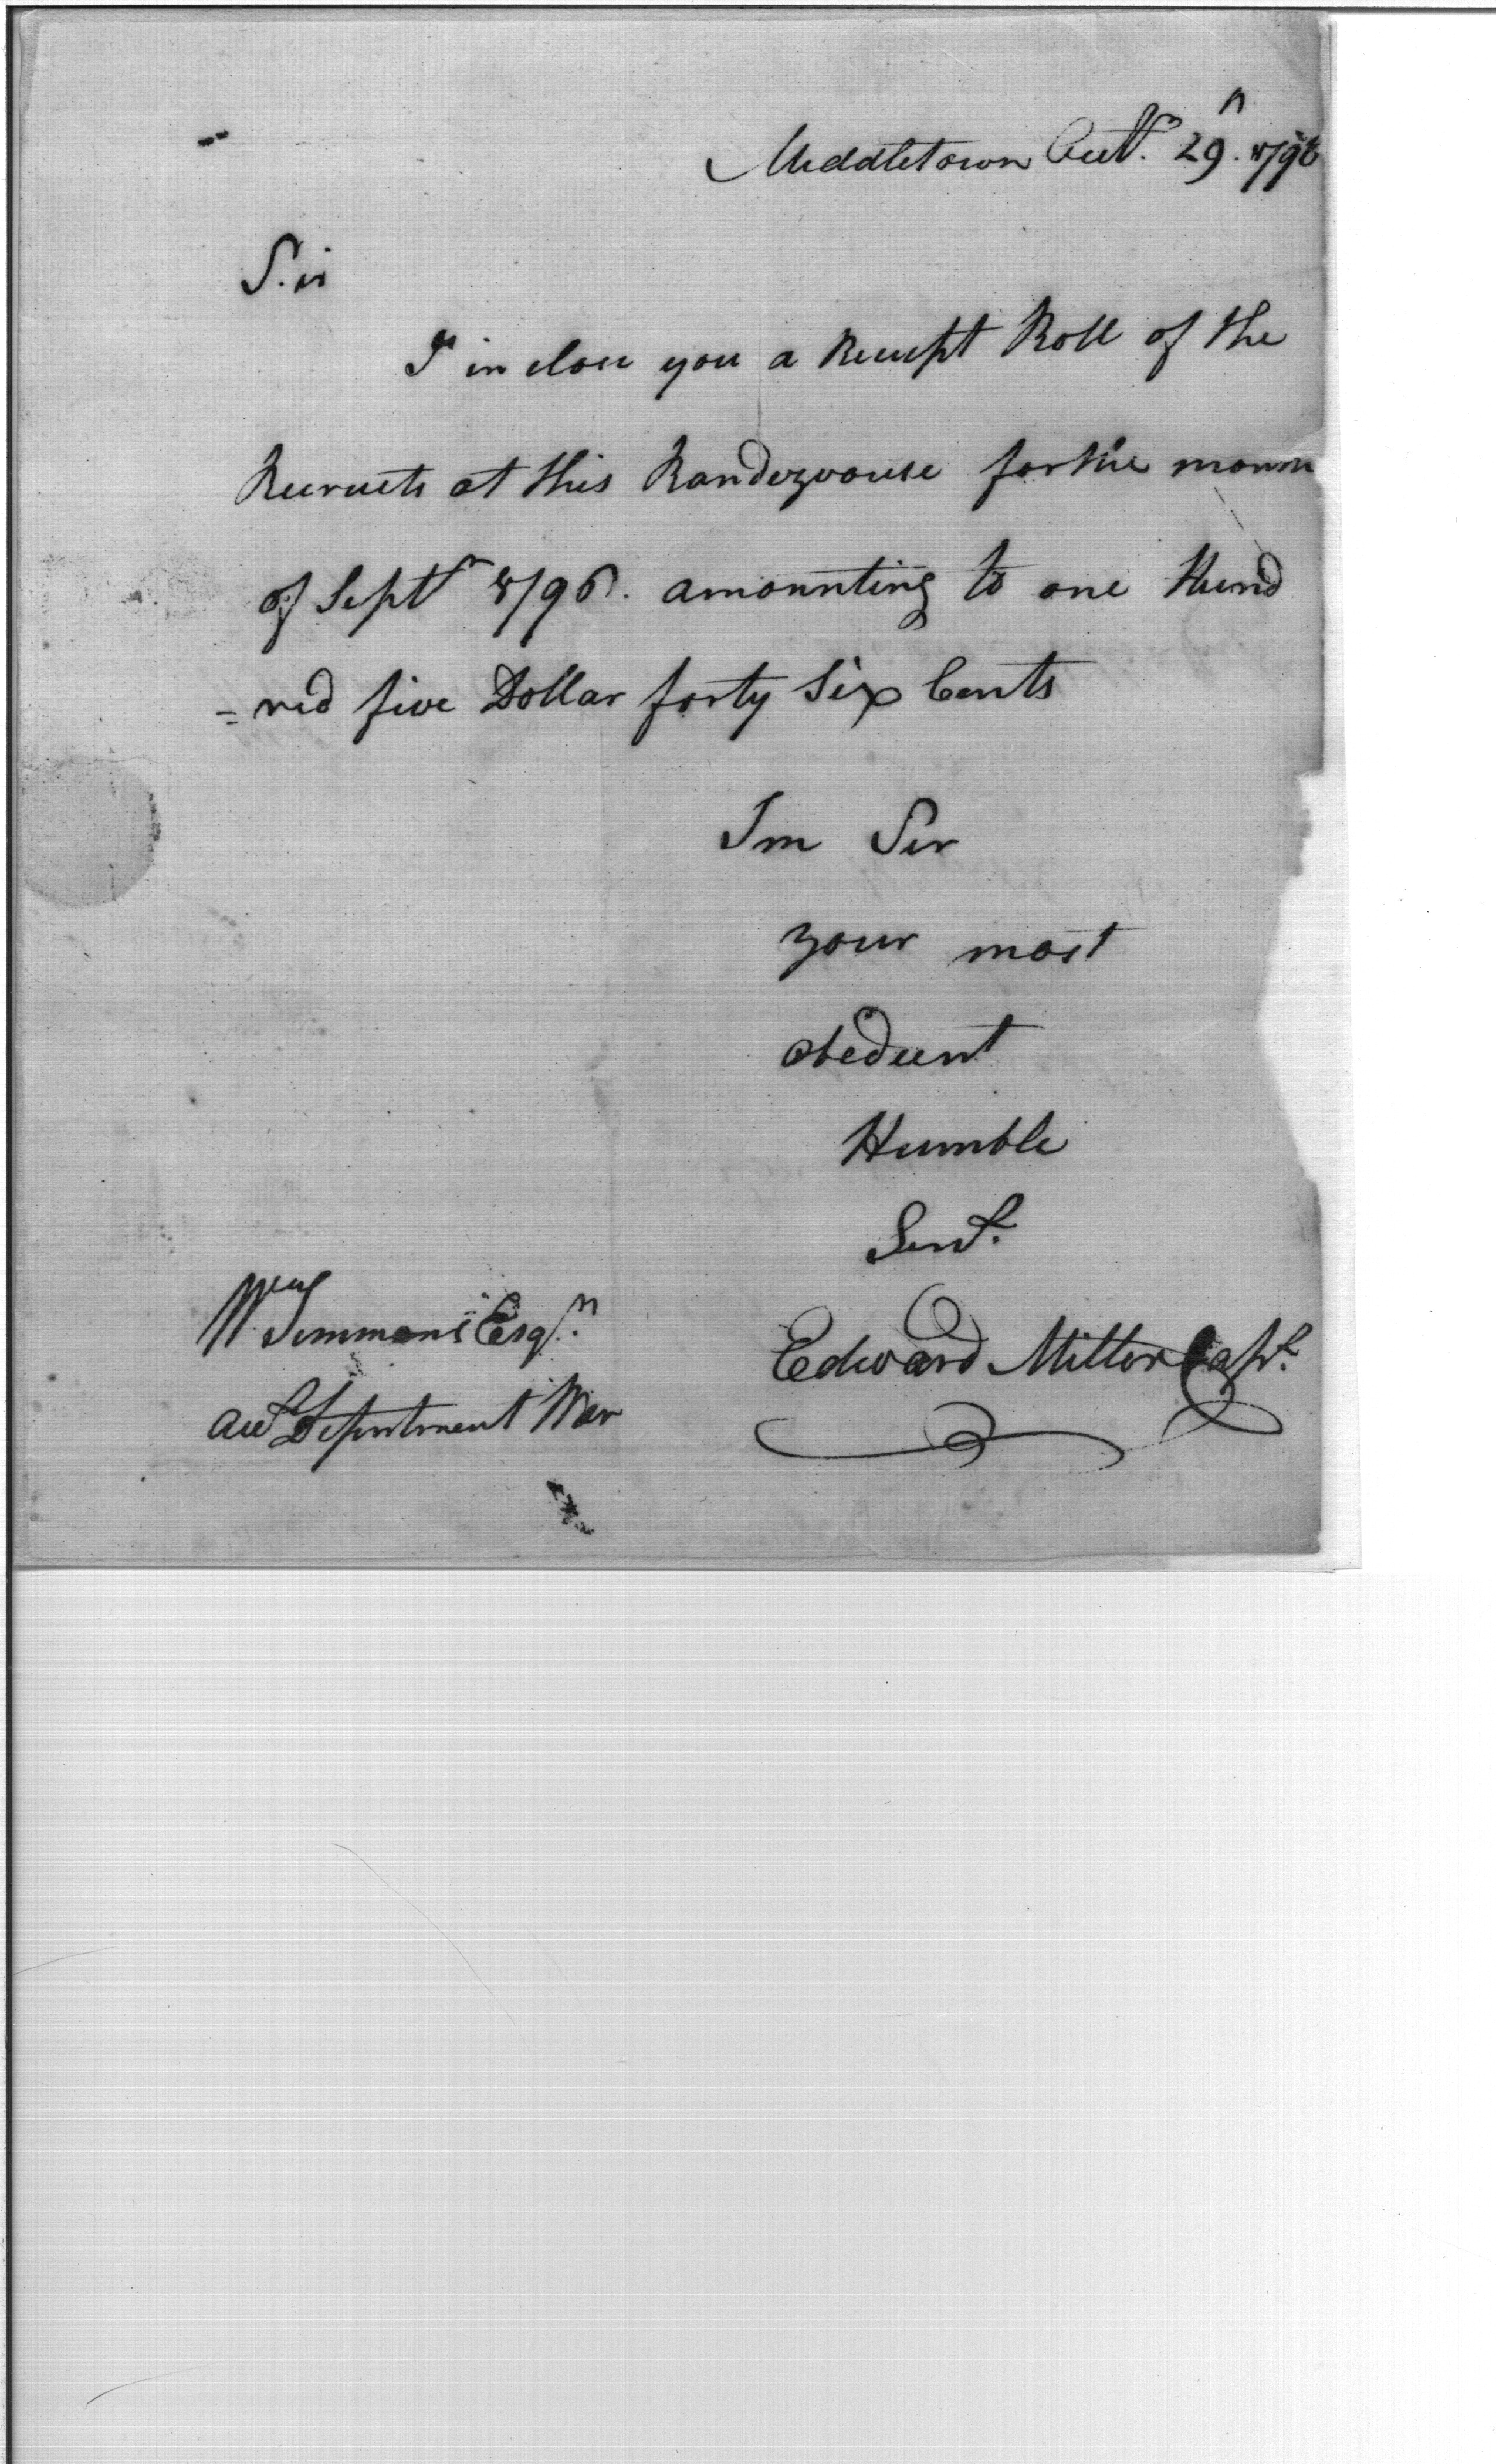 Middletown Octr. 29. 1796
Sir
I inclose you a Receipt Roll of the
Recruets at this Randezvouse for the month
of Septr 1796. amounting to one Hund
= red five Dollar forty six Cents
Im Sir
your most
obedient
Humble
Servt.
Wm Simmons Esqr.
Acct Department War
Edward Miller Capt.